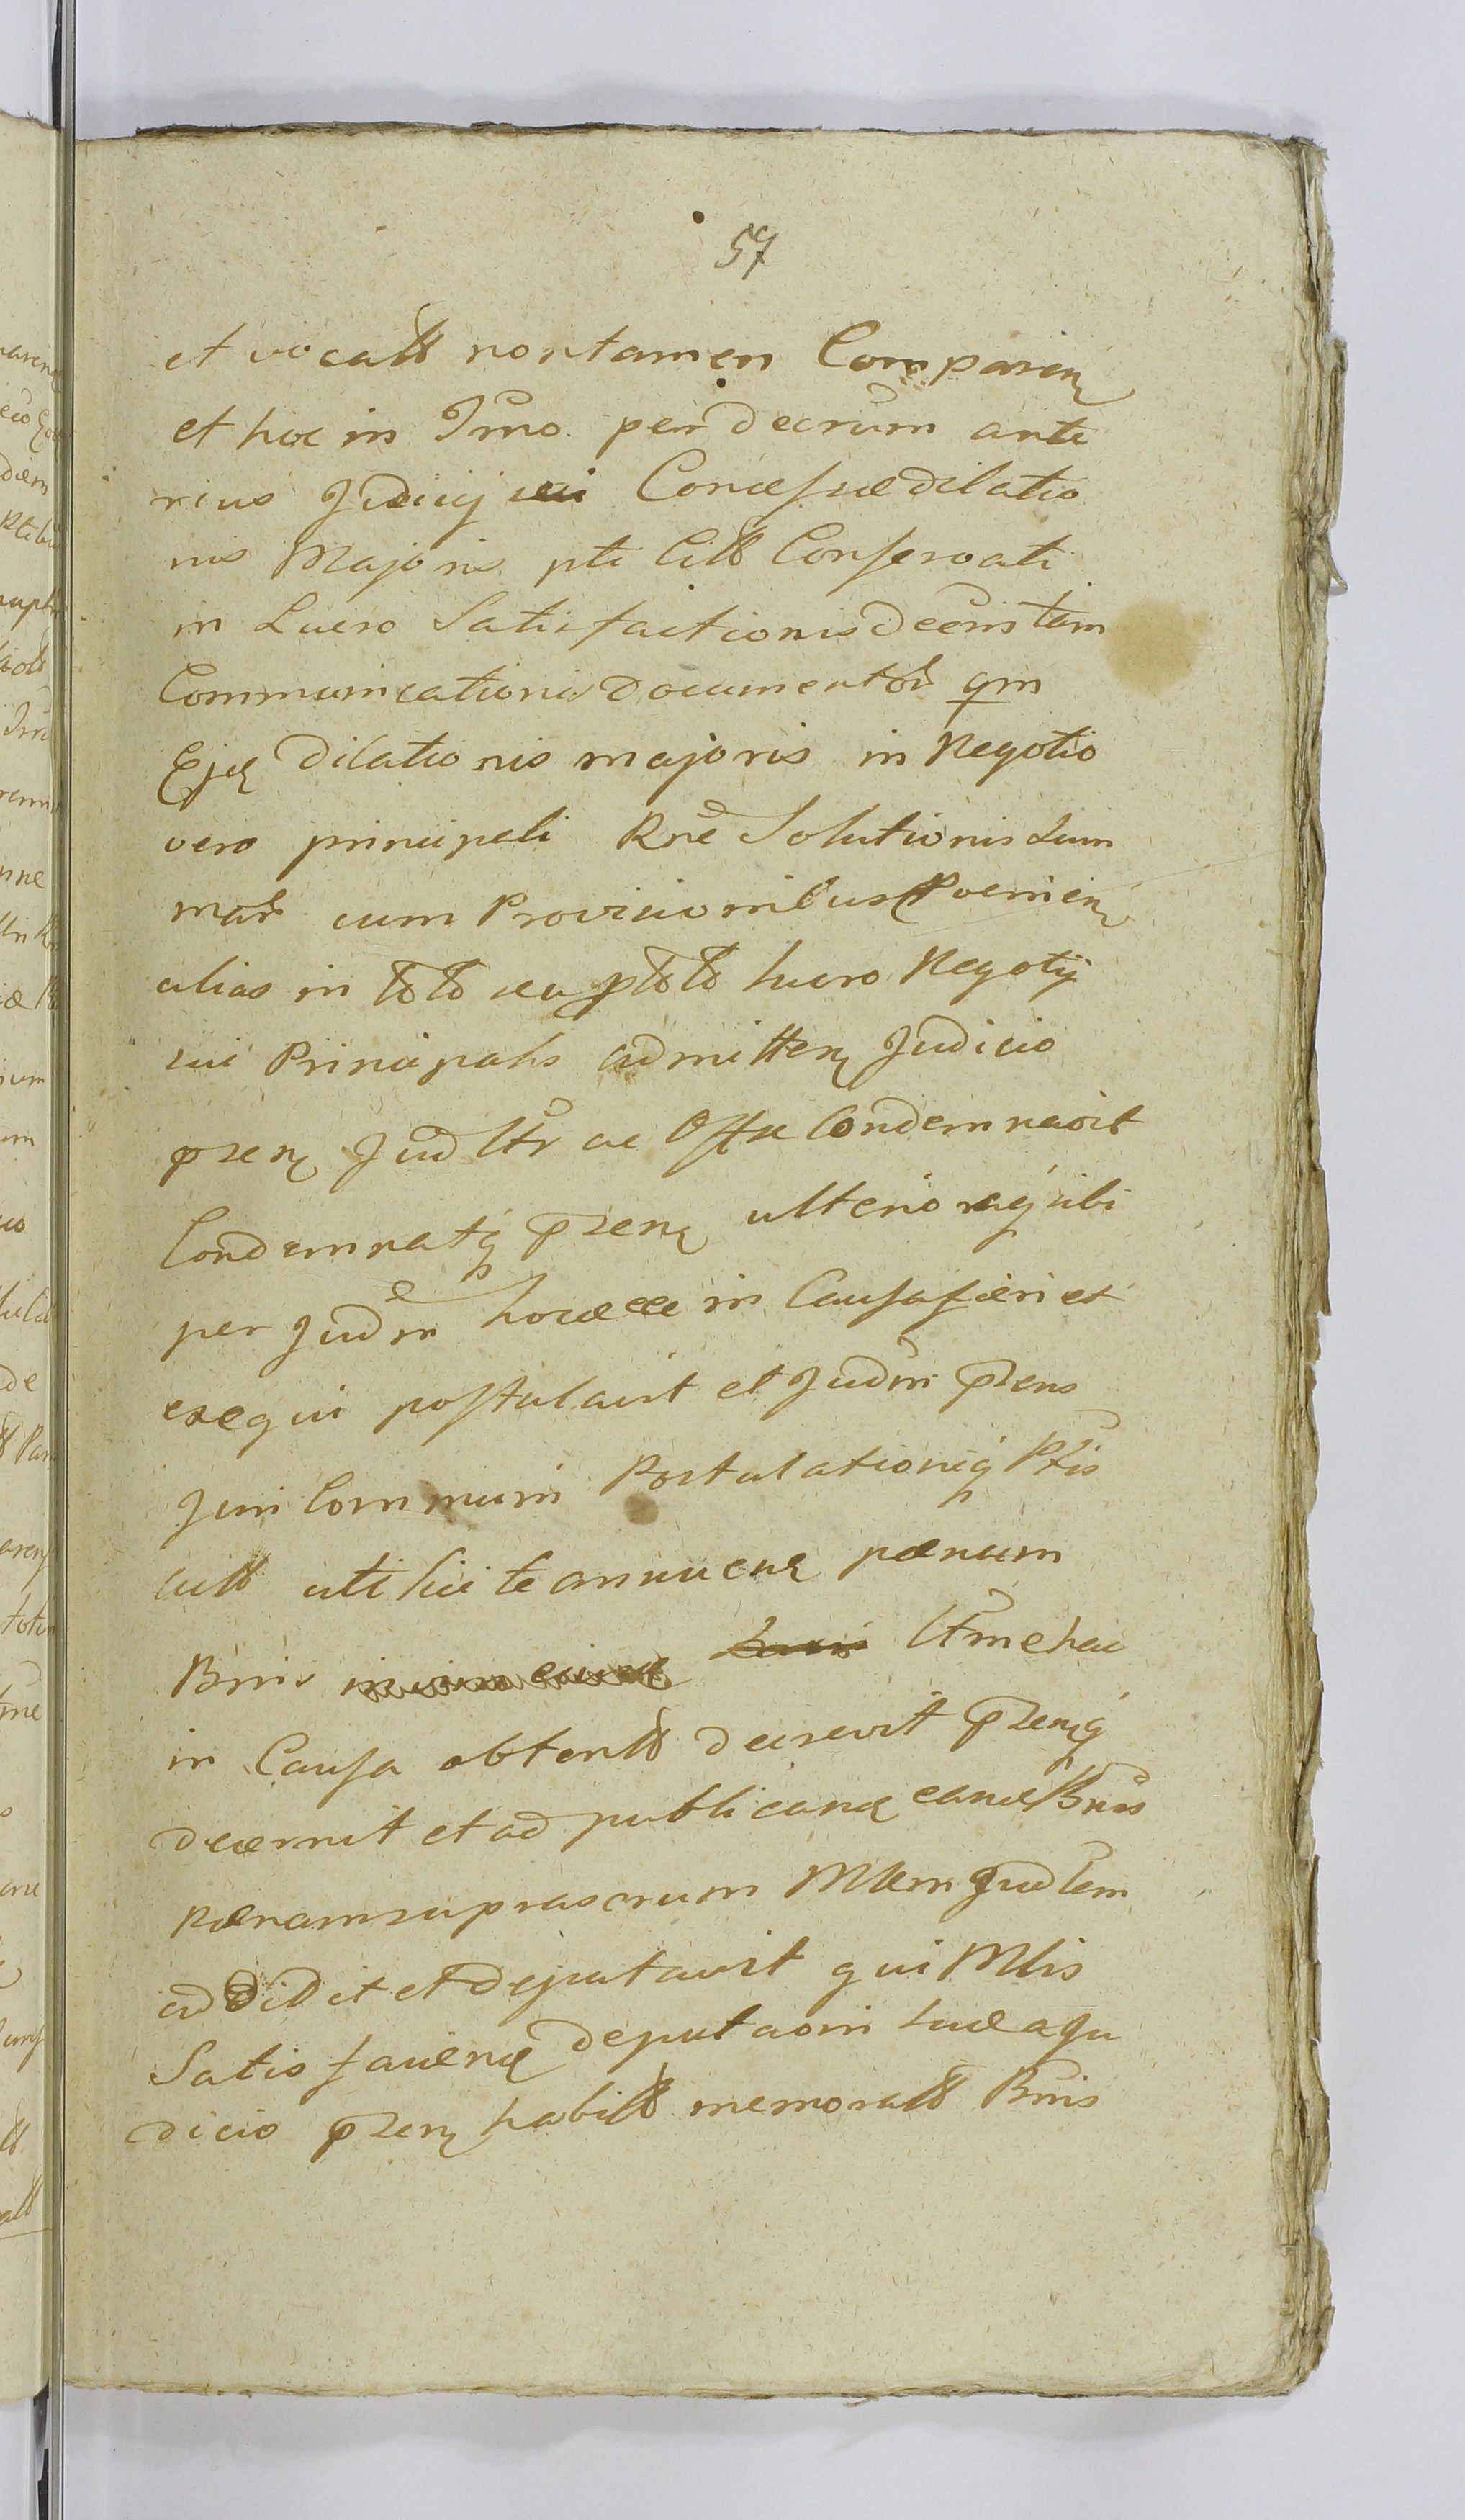 57
et vocatt non tamen Comparen
et hoc in Tmno. per Decrum ante
rius Judicij sui Concessæ dilatio
nis Majoris pti Citt Conservati
in Lucro Satisfactionis Decris tam
Communicationis Documentor qm
Ejus Dilationis majoris in Negotio
vero principali Rne Solutionis Sum
mar cum Provisionibus Poenien
alias in toto seu ptoto lucro Negotij
sui Principalis admitten Judicio
pnsen Jud ltr ac Osse Condemnavit
Condemnatq pnsen ulterioraq sibi
per Judm hocce in Causa fieri et
exequi postulavit et Judm pnsens
Juri Communi Postulationiq Ptis
citt uti licite annuens poenam
Bnnis ltme hac
in Causa obtentt decrevit pnsenq
decernit et ad publicand eand Bnnis
poenam suprascrum Mlem Judlem
addidit et deputavit qui Mlis
Satisfaciend deputaoni suæ a Ju
dicio pnsen habitt memoratt Bnnis